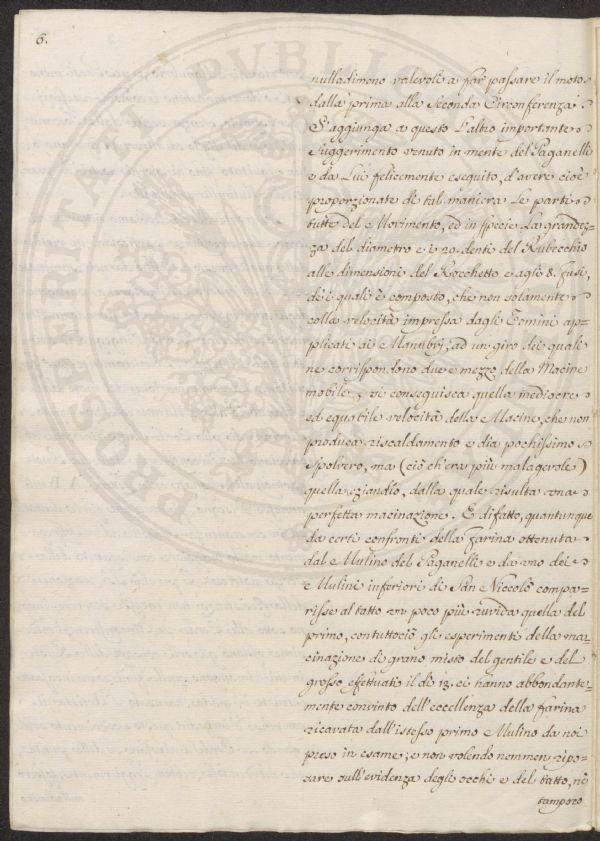 6.
nulladimeno valevole a far passare il moto
dalla prima alla Seconda Circonferenza.
S'aggiunga a questo l'altro importante
Suggerimento venuto in mente del Paganelli
e da Lui felicemente eseguito, d'avere cioè
proporzionate di tal maniera le parti
tutte del Movimento, ed in specie la grandez-
za del diametro e i 20. denti del Rubecchio
alle dimensioni del Rocchetto e agli 8. fusi,
de i quali è composto, che non solamente
colla velocità impressa dagli Uomini ap-
plicati ai Manubrj, ad un giro dei quali
ne corrispondono due e mezzo della Macine
mobile, vi conseguisca quella mediocre
ed equabile velocità della Macine, che non
produca riscaldamento e dia pochissimo
Spolvero, ma (ciò ch'era più malagevole)
quella eziandìo, dalla quale risulta una
perfetta macinazione. E difatto, quantunque
da certi confronti della farina ottenuta
dal Mulino del Paganelli e da uno dei
Mulini inferiori di San Niccolò compa-
risse al tatto un poco più ruvida quella del
primo, contuttociò gli esperimenti della ma-
cinazione di grano misto del gentile e del
grosso effettuati il dì 13. ci hanno abbondante-
mente convinto dell'eccellenza della farina
ricavata dall'istesso primo Mulino da noi
preso in esame; e non volendo nemmen ripo-
sare sull'evidenza degli occhi e del tatto, nè
tampoco
PROSPERITATI PUBLICAE